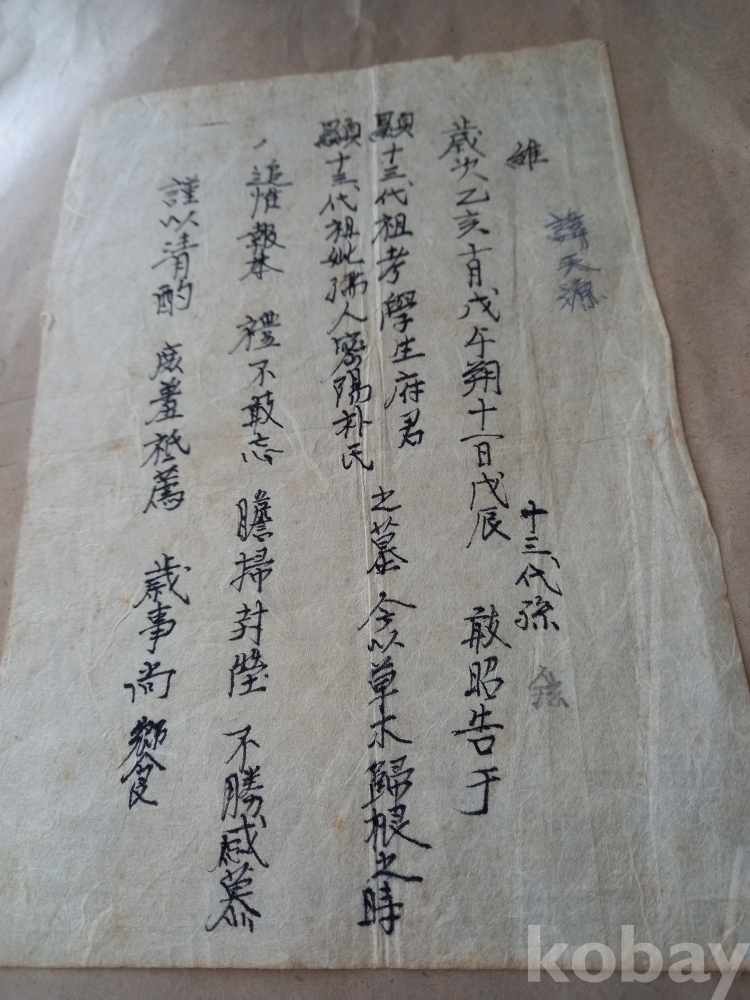 諱天源
維
歲次乙亥十月戊午朔十一日戊辰 十三代孫 敢昭告于
顯十三代祖考學生府君
顯十三代祖妣孺人密陽朴氏 之墓 今以草木歸根之時
追惟報本 禮不敢忘 瞻掃封塋 不勝感慕
謹以淸酌 庶羞祗薦 歲事尙饗
kobay